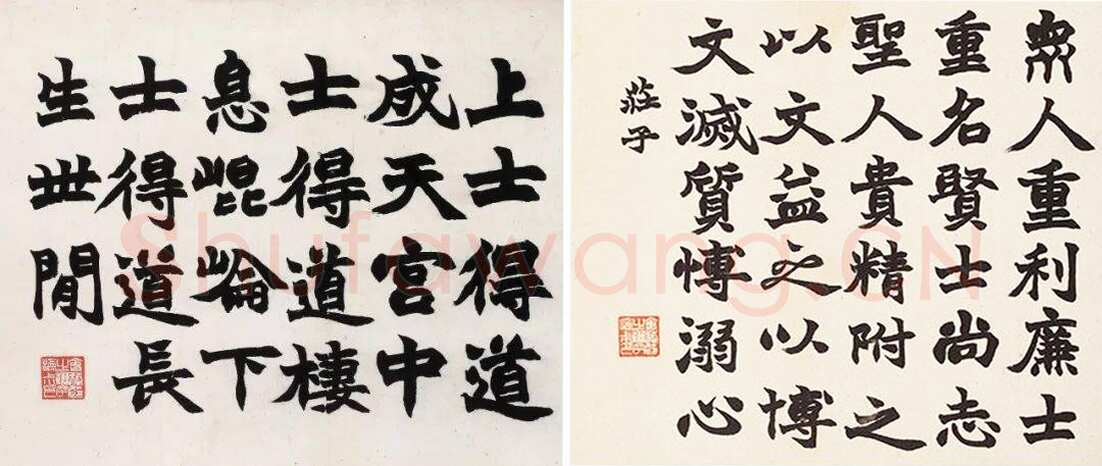 上士得道
成天宮中
士得道棲
息崐崘下
士得道長
生世閒
眾人重利廉士
重名賢士尚志
聖人貴精附之
以文益之以博
文滅質愽溺心
莊子
Shufawang.CN